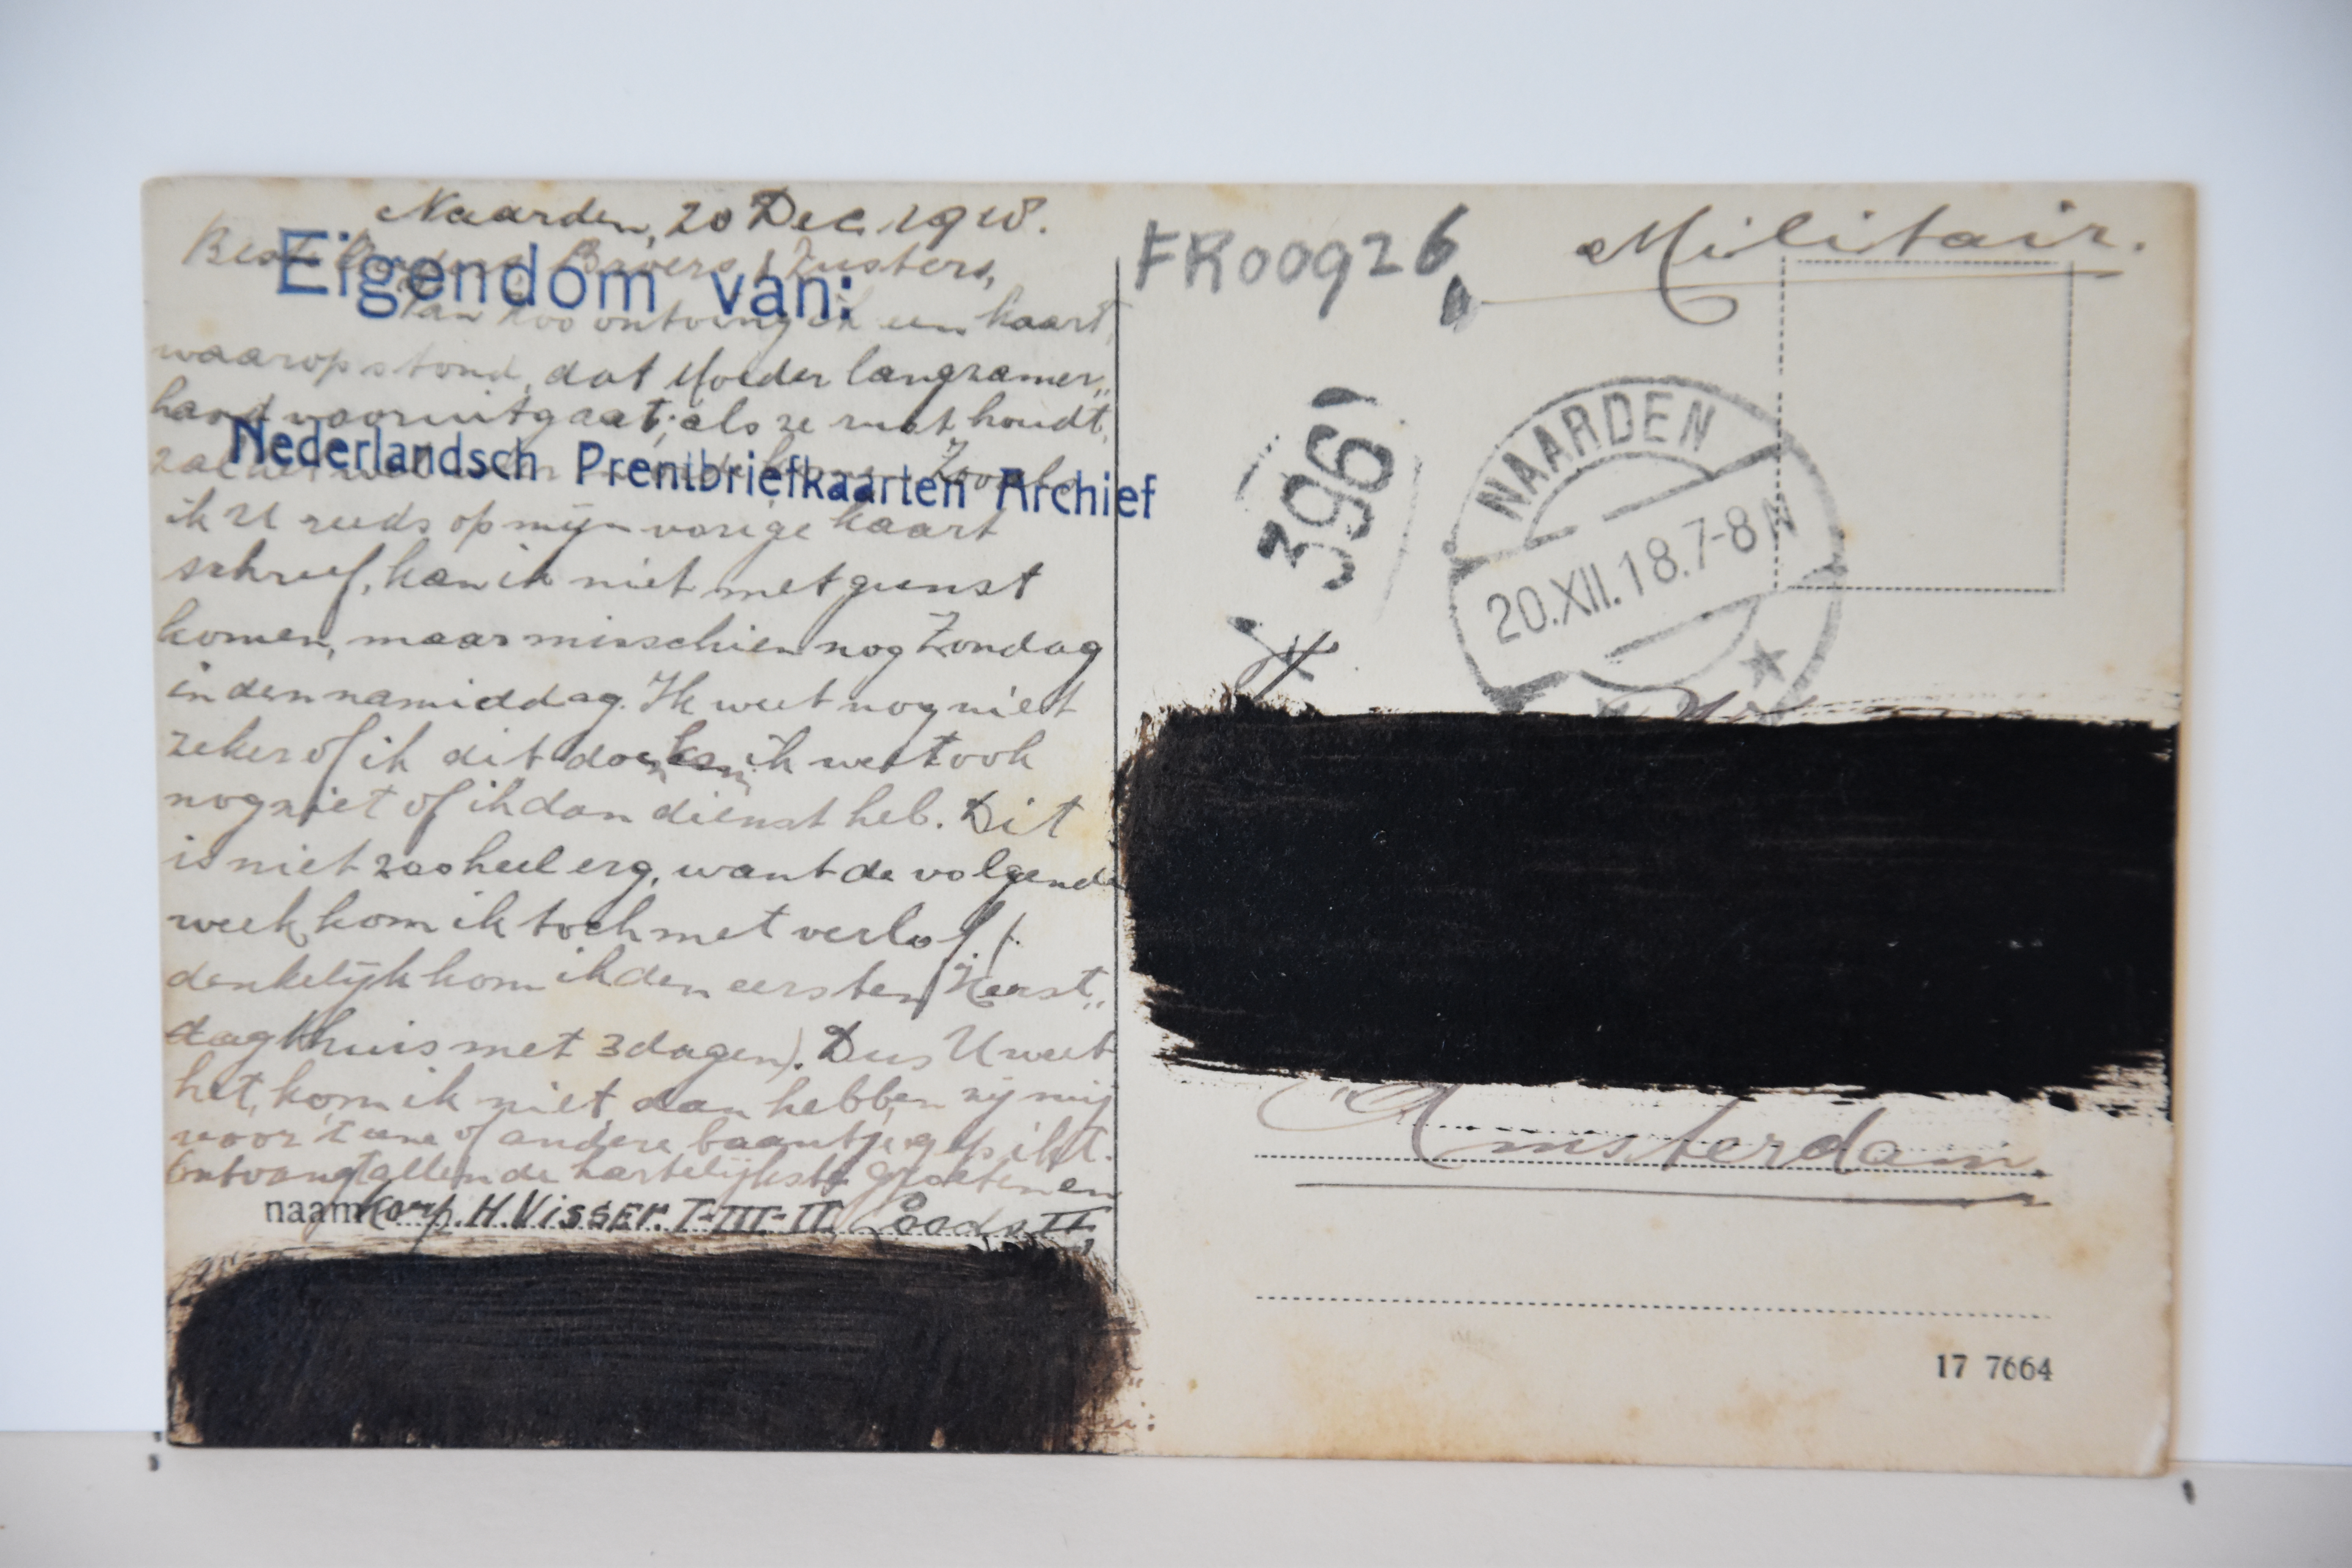 Naarden, 20 Dec. 1918.
Beste Broers & Zusters,
Eigendom van:
zoo ontving ik een kaart,
waarop stond, dat Moeder langzamer„
hand vooruitgaat; als ze rust houdt,
Nederlandsch Prentbriefkaarten Archief
Zooals
ik U reeds op mijn vorige kaart
schreef, kan ik niet met gunst
komen, maar misschien nog Zondag
in den namiddag. Ik weet nog niet
zeker of ik dit doen kan ik weet ook
nog niet of ik dan dienst heb. Dit
is niet zoo heel erg, want de volgende
week kom ik toch met verlof (.
denkelijk kom ik den eersten Kerst„
dag thuis met 3 dagen). Dus U weet
het, kom ik niet, dan hebben zij mij
voor 't eene of andere baantje gepikt.
Ontvangt allen de hartelijkste groeten en
naam Korp. H. Visser. I-III-II
FR00926
Militair.
396
NAARDEN
20.XII.18.7-8N
Amsterdam.
17 7664